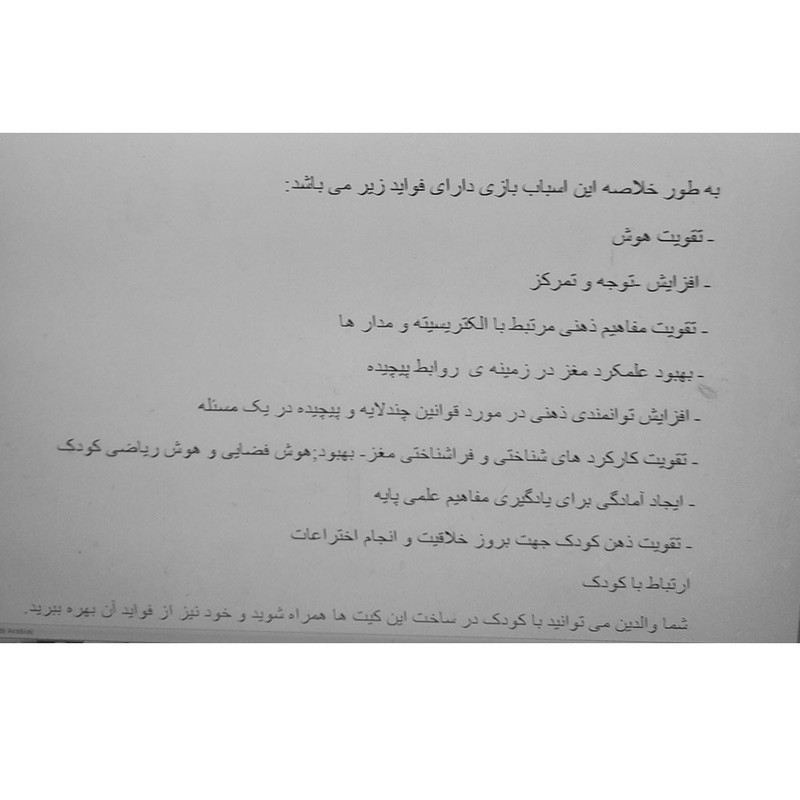 به طور خلاصه این اسباب بازی دارای فواید زیر می باشد:
- تقویت هوش
- افزایش -توجه و تمرکز
- تقویت مفاهیم ذهنی مرتبط با الکتریسیته و مدار ها
- بهبود علمکرد مغز در زمینه ی روابط پیچیده
- افزایش توانمندی ذهنی در مورد قوانین چندلایه و پیچیده در یک مسئله
- تقویت کارکرد های شناختی و فراشناختی مغز- بهبود;هوش فضایی و هوش ریاضی کودک
- ایجاد آمادگی برای یادگیری مفاهیم علمی پایه
- تقویت ذهن کودک جهت بروز خلاقیت و انجام اختراعات
ارتباط با کودک
شما والدین می توانید با کودک در ساخت این کیت ها همراه شوید و خود نیز از فواید آن بهره ببرید.